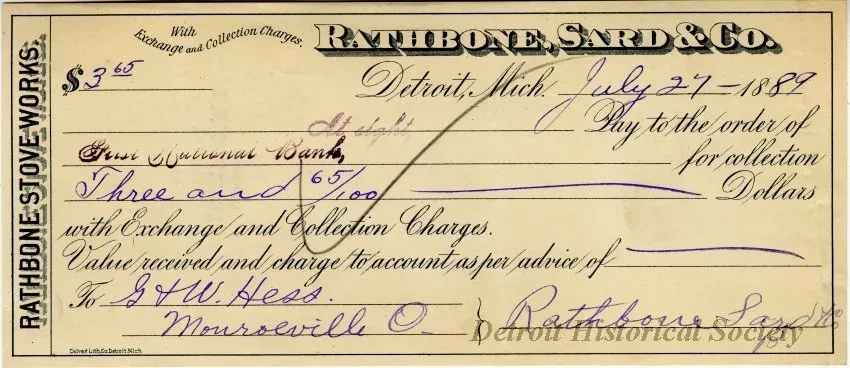 RATHBONE STOVE WORKS.
With Exchange and Collection Charges.
RATHBONE, SARD & CO.
$3 65
Detroit, Mich. July 27 - 1889
At sight, Pay to the order of
First National Bank, for collection
Three and 65/100 Dollars
with Exchange and Collection Charges.
Value received and charge to account as per advice of
To G & W. Hess. Rathbone Sard & Co
Monroeville O.
Detroit Historical Society
Calvert Lith. Co. Detroit, Mich.